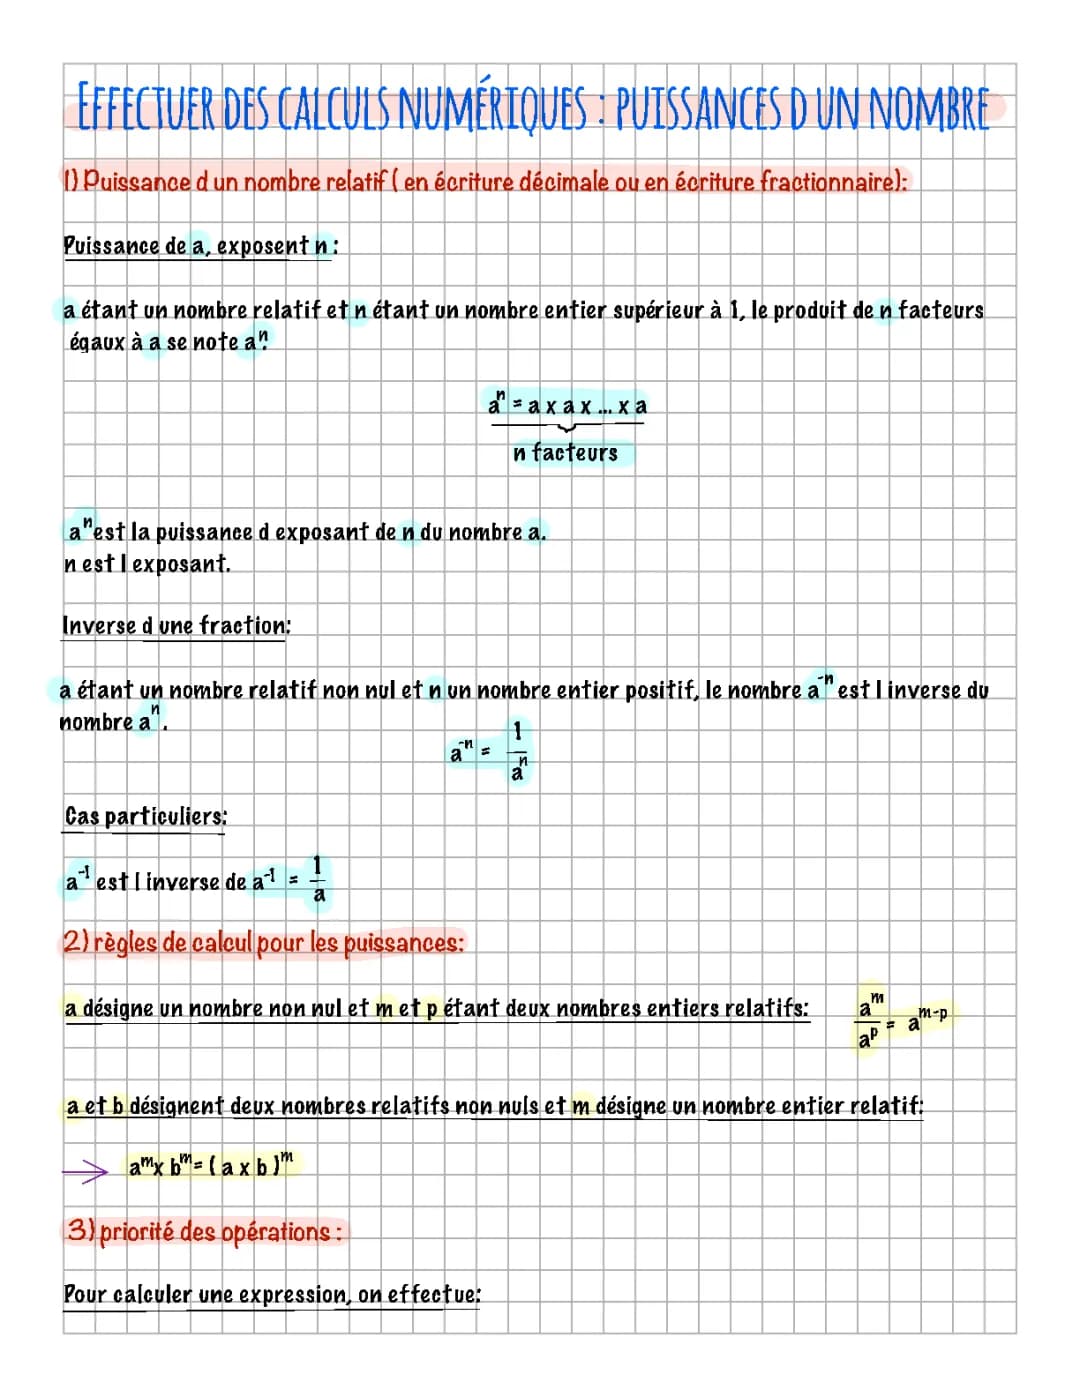 EFFECTUER DES CALCULS NUMÉRIQUES : PUISSANCES D UN NOMBRE
1) Puissance d un nombre relatif ( en écriture décimale ou en écriture fractionnaire):
Puissance de a, exposent n :
a étant un nombre relatif et n étant un nombre entier supérieur à 1, le produit de n facteurs
égaux à a se note aⁿ.
aⁿ = a x a x ... x a
n facteurs
aⁿ est la puissance d exposant de n du nombre a.
n est l exposant.
Inverse d une fraction:
a étant un nombre relatif non nul et n un nombre entier positif, le nombre a⁻ⁿ est l inverse du
nombre aⁿ.
a⁻ⁿ = 1/aⁿ
Cas particuliers:
a⁻¹ est l inverse de a⁻¹ = 1/a
2) règles de calcul pour les puissances:
a désigne un nombre non nul et m et p étant deux nombres entiers relatifs: aᵐ/aᵖ = aᵐ⁻ᵖ
a et b désignent deux nombres relatifs non nuls et m désigne un nombre entier relatif:
→ aᵐ x bᵐ = ( a x b )ᵐ
3) priorité des opérations :
Pour calculer une expression, on effectue: